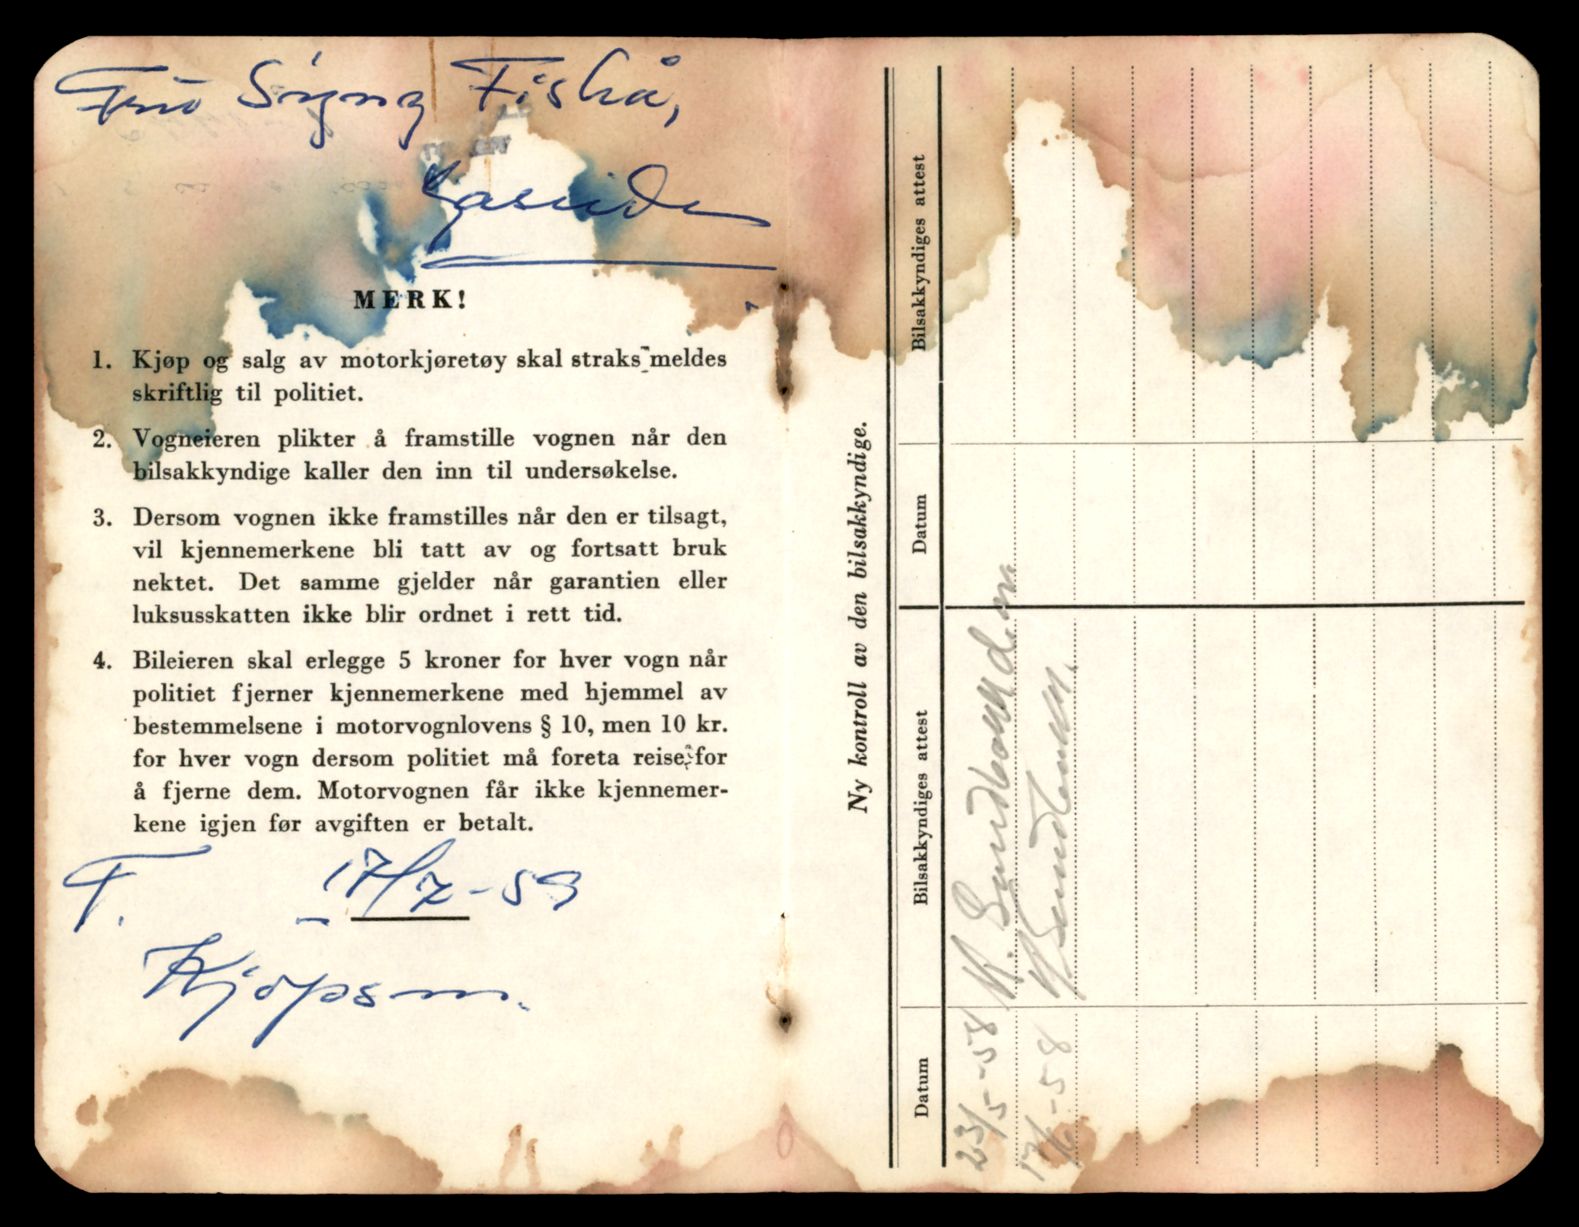 Fru Signy Fiskå,
MERK!
1. Kjøp og salg av motorkjøretøy skal straks meldes
skriftlig til politiet.
2. Vogneieren plikter å framstille vognen når den
bilsakkyndige kaller den inn til undersøkelse.
3. Dersom vognen ikke framstilles når den er tilsagt,
vil kjennemerkene bli tatt av og fortsatt bruk
nektet. Det samme gjelder når garantien eller
luksusskatten ikke blir ordnet i rett tid.
4. Bileieren skal erlegge 5 kroner for hver vogn når
politiet fjerner kjennemerkene med hjemmel av
bestemmelsene i motorvognlovens § 10, men 10 kr.
for hver vogn dersom politiet må foreta reise for
å fjerne dem. Motorvognen får ikke kjennemer-
kene igjen før avgiften er betalt.
F. 17/7-59
Kjøpsm.
Ny kontroll av den bilsakkyndige.
Datum Bilsakkyndiges attest Datum Bilsakkyndiges attest
23/5-58
17/6-58